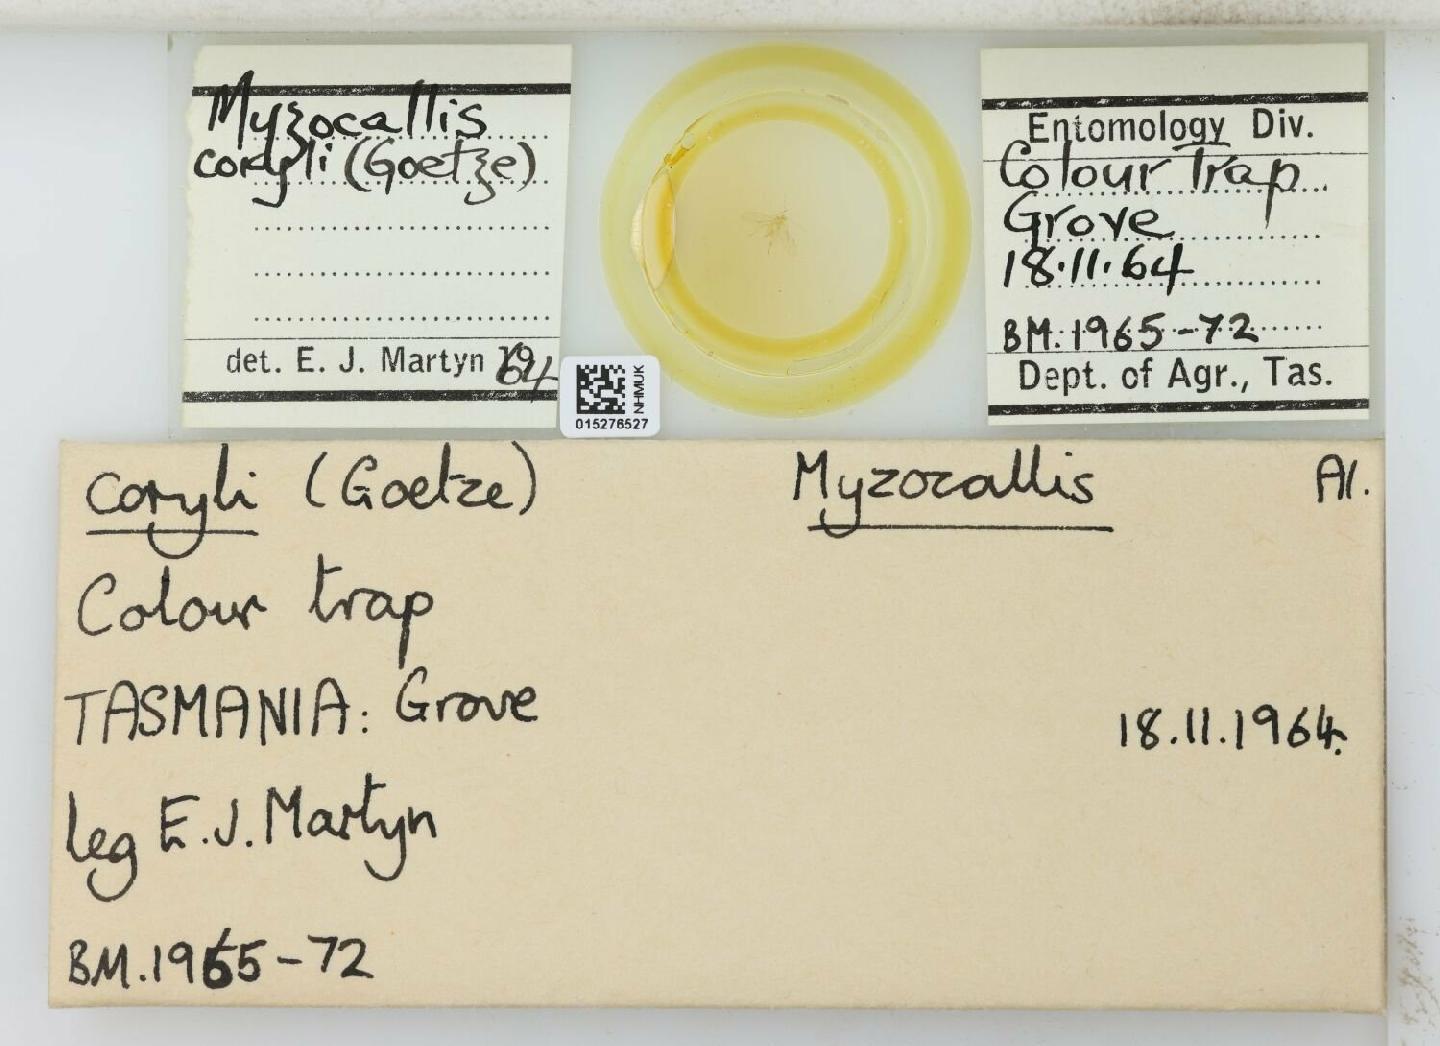 Myzocallis
coryli (Goetze)
det. E. J. Martyn 1964
NHMUK
015276527
Entomology Div.
Colour Trap
Grove
18.11.64
BM.1965-72
Dept. of Agr., Tas.
coryli (Goetze) Myzocallis Al.
Colour trap
TASMANIA: Grove 18.11.1964.
leg E.J. Martyn
BM.1965-72